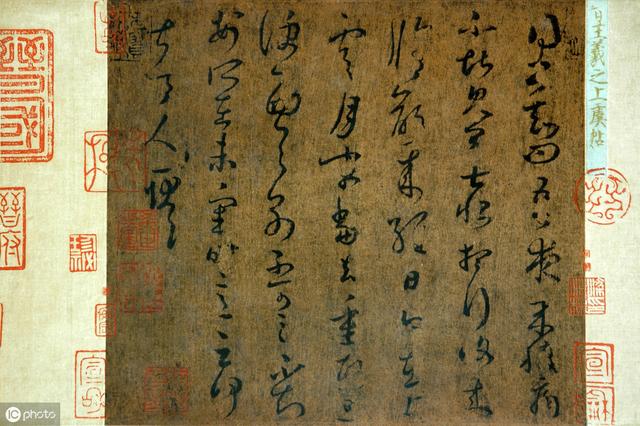 晉王羲之上虞帖
得書知問吾夜來腹痛
不堪見卿甚恨想行復來
修齡來經日今在上
虞月末當去重熙旦
便西與別不可言不知
安所在未審時意云何
甚令人耿耿
晉府
IC photo